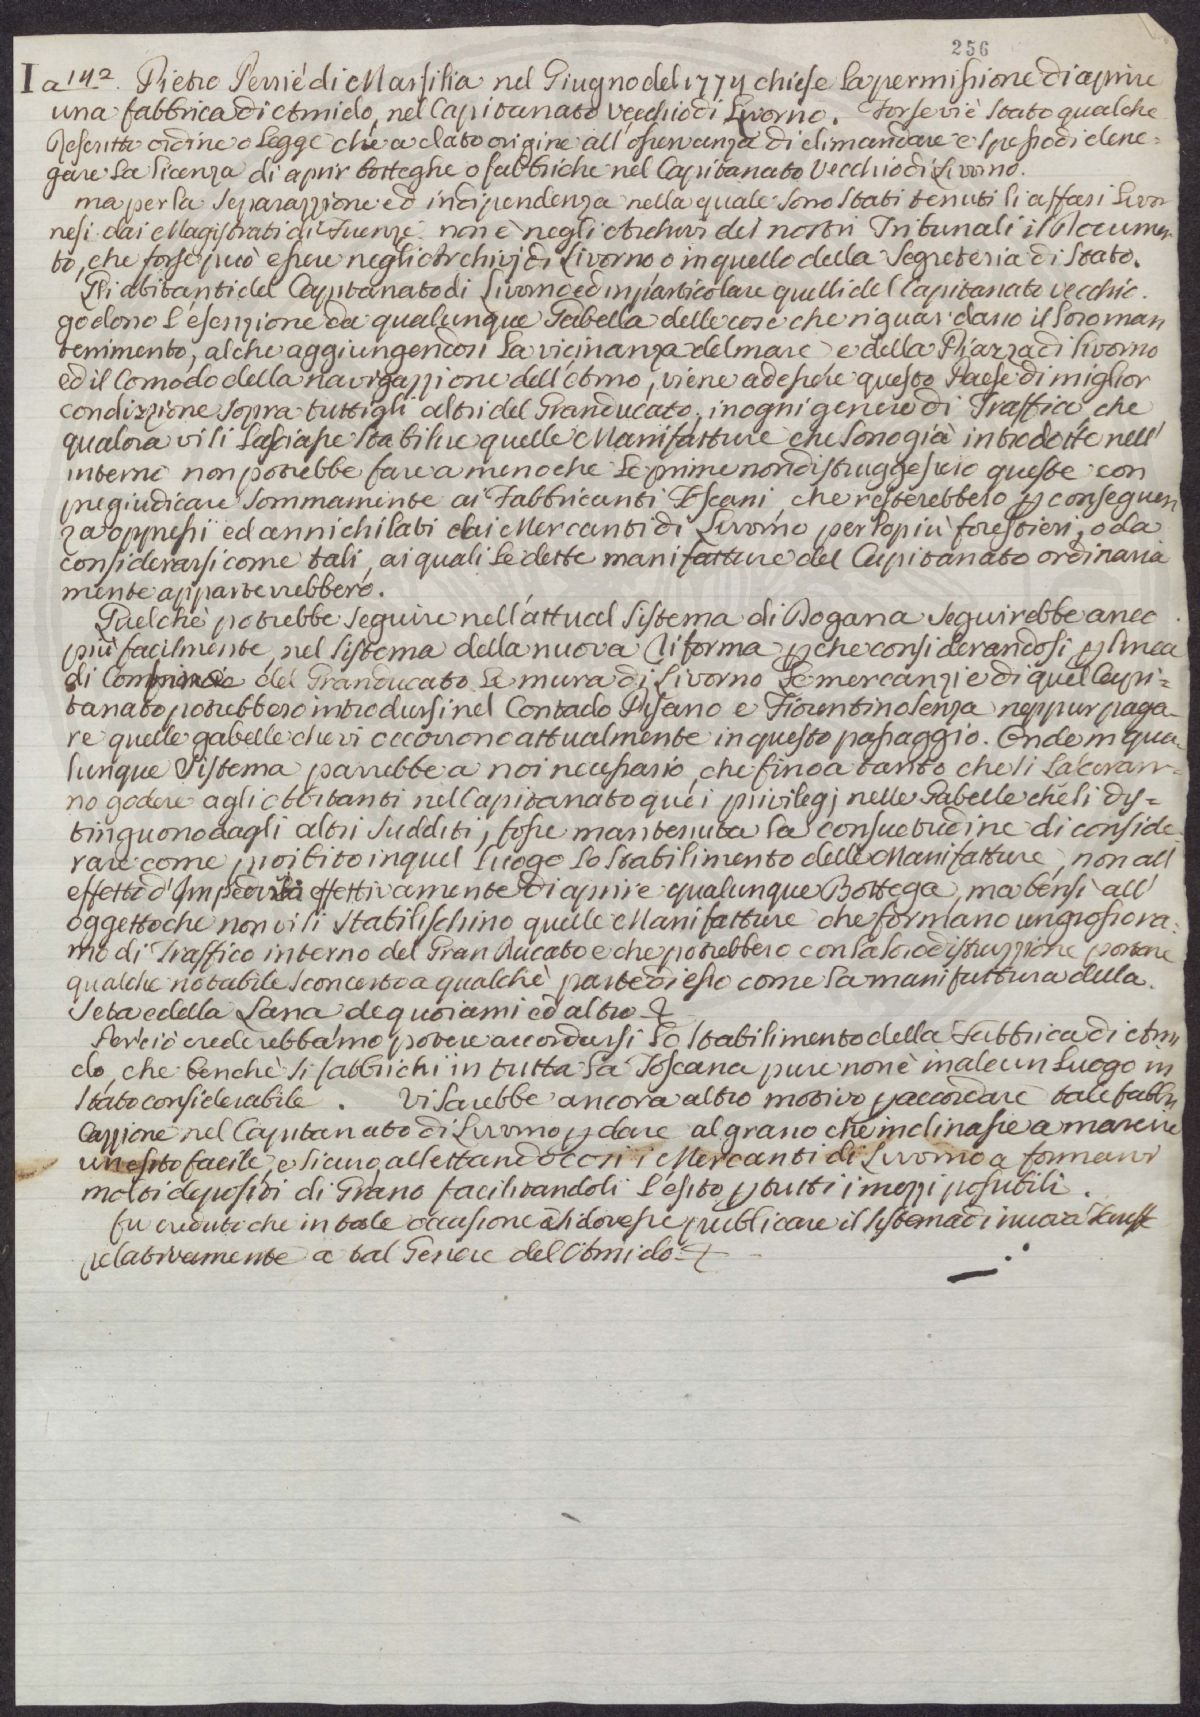 256
I a 142. Pietro Perrié di Marsilia nel Giugno del 1774 chiese la permissione di aprire
una fabbrica di Amido, nel Capitanato Vecchio di Livorno. Forse vi è stato qualche
Rescritto ordine o Legge che a dato origine all'osservanza di dimandare e spesso di dene=
gare la licenza di aprir botteghe o fabbriche nel Capitanato Vecchio di Livorno.
ma per la separazzione ed indipendenza nella quale sono stati tenuti li affari Livor
nesi dai Magistrati di Firenze non è negli Archivi dei nostri Tribunali il Documen=
to, che forse può essere negli Archivj di Livorno o in quello della Segreteria di Stato.
Gli abitanti del Capitanato di Livorno ed in particolare quelli del Capitanato vecchio
godono l'esenzione da qualunque Gabella delle cose che riguardano il loro man
tenimento, al che aggiungendosi la vicinanza del mare e della Piazza di Livorno
ed il Comodo della navigazzione dell'Arno, viene ad essere questo Paese di miglior
condizione sopra tutti gli altri del Granducato, in ogni genere di Traffico, che
qualora vi si lasciasse stabilire quelle Manifatture che sono già introdotte nell'
interno non potrebbe fare a meno che le prime non distruggessero queste con
pregiudicare sommamente ai Fabbricanti Toscani, che resterebbero p conseguen
za oppressi ed annichilati dai Mercanti di Livorno per lo più forestieri, o da
considerarsi come tali, ai quali le dette manifatture del Capitanato ordinaria
mente apparterrebbero.
Quel che potrebbe seguire nell'attual sistema di Dogana seguirebbe anco
più facilmente nel sistema della nuova Riforma p che considerandosi p linea
di del Granducato le mura di Livorno le mercanzie di quel Capi=
tanato potrebbero introdursi nel Contado Pisano e Fiorentino senza neppur paga=
re quelle gabelle che vi occorrono attualmente in questo passaggio. Onde in qua=
lunque sistema parrebbe a noi necessario, che fino a tanto che si lasceran=
no godere agli Abitanti nel Capitanato quei privilegj nelle Gabelle che li dis=
tinguono dagli altri sudditi, fosse mantenuta la consuetudine di conside=
rare come proibito in quel Luogo lo stabilimento delle Manifatture, non all'
effetto d'Impedire effettivamente di aprire qualunque Bottega, ma bensì all'
oggetto che non vi si stabilischino quelle Manifatture che formano un grosso ra=
mo di Traffico interno del Gran Ducato e che potrebbero con la loro distruzzione portare
qualche notabile sconcerto a qualche parte di esso come la manifattura della
Seta e della Lana de quoiami ed altro
Perciò crederebbamo potere accordarsi lo stabilimento della Fabbrica di Ami
do, che benchè si fabbrichi in tutta la Toscana pure non è in alcun Luogo in
stato considerabile. Vi sarebbe ancora altro motivo p accordare tale fabbri
cazzione nel Capitanato di Livorno p dare al grano che inclinasse a marcire
un esito facile, e sicuro, allettando così i Mercanti di Livorno a formarvi
molti depositi di Grano facilitandoli l'esito p tutti i mezzi possibili.
fu creduto che in tale occasione si dovesse pubblicare il sistema di nuova
relativamente a tal Genere dell'Amido